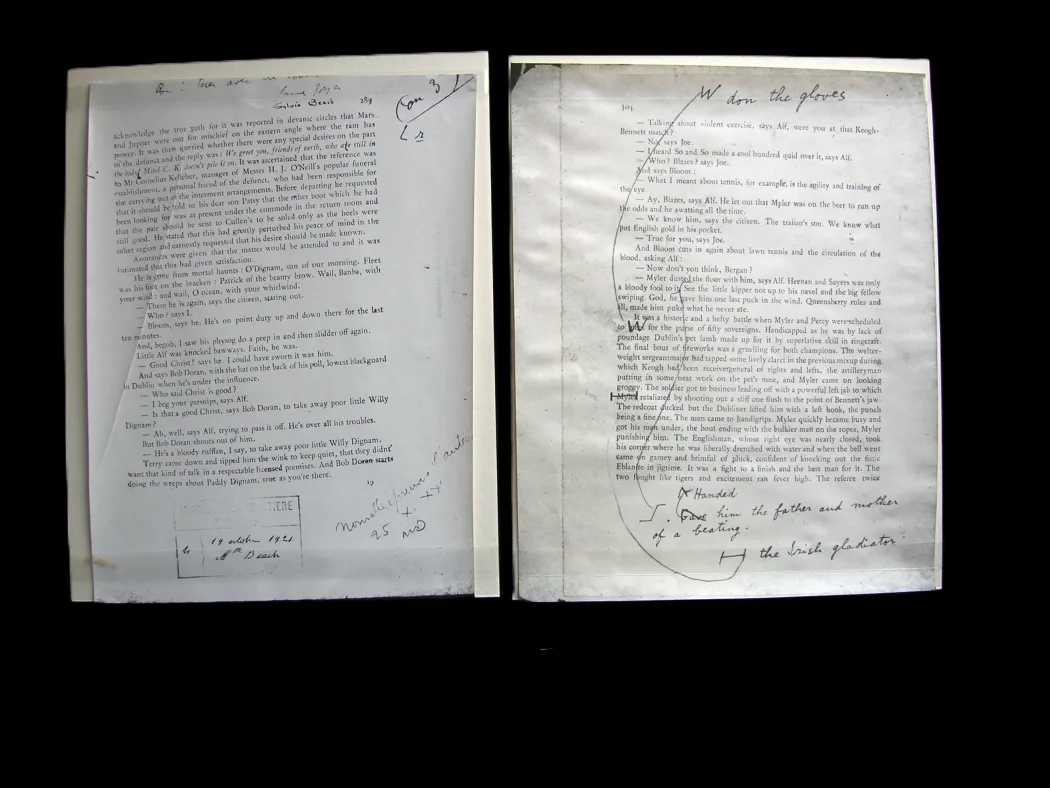 Sylvia Beach 289
Con 3
acknowledge the true path for it was reported in devanic circles that Mars
and Jupiter were out for mischief on the eastern angle where the ram has
power. It was then queried whether there were any special desires on the part
of the defunct and the reply was : We greet you, friends of earth, who are still in
the body. Mind C. K. doesn't pile it on. It was ascertained that the reference was
to Mr Cornelius Kelleher, manager of Messrs H. J. O'Neill's popular funeral
establishment, a personal friend of the defunct, who had been responsible for
the carrying out of the interment arrangements. Before departing he requested
that it should be told to his dear son Patsy that the other boot which he had
been looking for was at present under the commode in the return room and
that the pair should be sent to Cullen's to be soled only as the heels were
still good. He stated that this had greatly perturbed his peace of mind in the
other region and earnestly requested that his desire should be made known.
Assurances were given that the matter would be attended to and it was
intimated that this had given satisfaction.
He is gone from mortal haunts : O'Dignam, sun of our morning. Fleet
was his foot on the bracken : Patrick of the beamy brow. Wail, Banba, with
your wind : and wail, O ocean, with your whirlwind.
— There he is again, says the citizen, staring out.
— Who? says I.
— Bloom, says he. He's on point duty up and down there for the last
ten minutes.
And, begob, I saw his physog do a peep in and then slidder off again.
Little Alf was knocked bawways. Faith, he was.
— Good Christ! says he. I could have sworn it was him.
And says Bob Doran, with the hat on the back of his poll, lowest blackguard
in Dublin when he's under the influence.
— Who said Christ is good?
— I beg your parsnips, says Alf.
— Is that a good Christ, says Bob Doran, to take away poor little Willy
Dignam?
— Ah, well, says Alf, trying to pass it off. He's over all his troubles.
But Bob Doran shouts out of him.
— He's a bloody ruffian, I say, to take away poor little Willy Dignam.
Terry came down and tipped him the wink to keep quiet, that they didn't
want that kind of talk in a respectable licensed premises. And Bob Doran starts
doing the weeps about Paddy Dignam, true as you're there.
19
19 octobre 1921
Mlle Beach
W don the gloves
— Talking about violent exercise, says Alf, were you at that Keogh-
Bennett match?
— No, says Joe.
— I heard So and So made a cool hundred quid over it, says Alf.
— Who? Blazes? says Joe.
And says Bloom :
— What I meant about tennis, for example, is the agility and training of
the eye.
— Ay, Blazes, says Alf. He let out that Myler was on the beer to run up
the odds and he swatting all the time.
— We know him, says the citizen. The traitor's son. We know what
put English gold in his pocket.
— True for you, says Joe.
And Bloom cuts in again about lawn tennis and the circulation of the
blood, asking Alf :
— Now don't you think, Bergan?
— Myler dusted the floor with him, says Alf. Heenan and Sayers was only
a bloody fool to it. See the little kipper not up to his navel and the big fellow
swiping. God, he gave him one last puck in the wind. Queensberry rules and
all, made him puke what he never ate.
It was a historic and a hefty battle when Myler and Percy were scheduled
to W for the purse of fifty sovereigns. Handicapped as he was by lack of
poundage Dublin's pet lamb made up for it by superlative skill in ringcraft.
The final bout of fireworks was a gruelling for both champions. The welter-
weight sergeantmajor had tapped some lively claret in the previous mixup during
which Keogh had been receivergeneral of rights and lefts, the artilleryman
putting in some neat work on the pet's nose, and Myler came on looking
groggy. The soldier got to business leading off with a powerful left jab to which
Myler retaliated by shooting out a stiff one flush to the point of Bennett's jaw.
The redcoat ducked but the Dubliner lifted him with a left hook, the punch
being a fine one. The men came to handigrips. Myler quickly became busy and
got his man under, the bout ending with the bulkier man on the ropes, Myler
punishing him. The Englishman, whose right eye was nearly closed, took
his corner where he was liberally drenched with water and when the bell went
came on gamey and brimful of pluck, confident of knocking out the fistic
Eblanite in jigtime. It was a fight to a finish and the best man for it. The
two fought like tigers and excitement ran fever high. The referee twice
Handed
Gave him the father and mother
of a beating.
the Irish gladiator